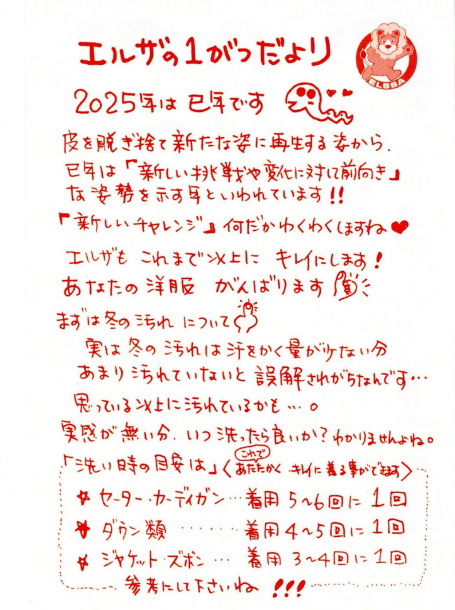 エルザの1がつだより
ELSSA
2025年は 巳年です
皮を脱ぎ捨て新たな姿に再生する姿から、
巳年は「新しい挑戦や変化に対して前向き」
な姿勢を示す年といわれています!!
『新しいチャレンジ』何だかわくわくしますね
エルザも これまで以上に キレイにします!
あなたの洋服 がんばります
まずは冬の汚れ について
実は冬の汚れは汗をかく量が少ない分
あまり汚れていないと 誤解されがちなんです…
思っている以上に汚れているかも…。
実感が無い分、いつ洗ったら良いか?わかりませんよね。
「洗い時の目安は」(これであたたかく キレイに着る事ができます)
☆ セーター・カーディガン… 着用 5~6回に 1回
☆ ダウン類 ‥‥‥ 着用 4~5回に 1回
☆ ジャケット・ズボン… 着用 3~4回に 1回
参考にして下さいね !!!